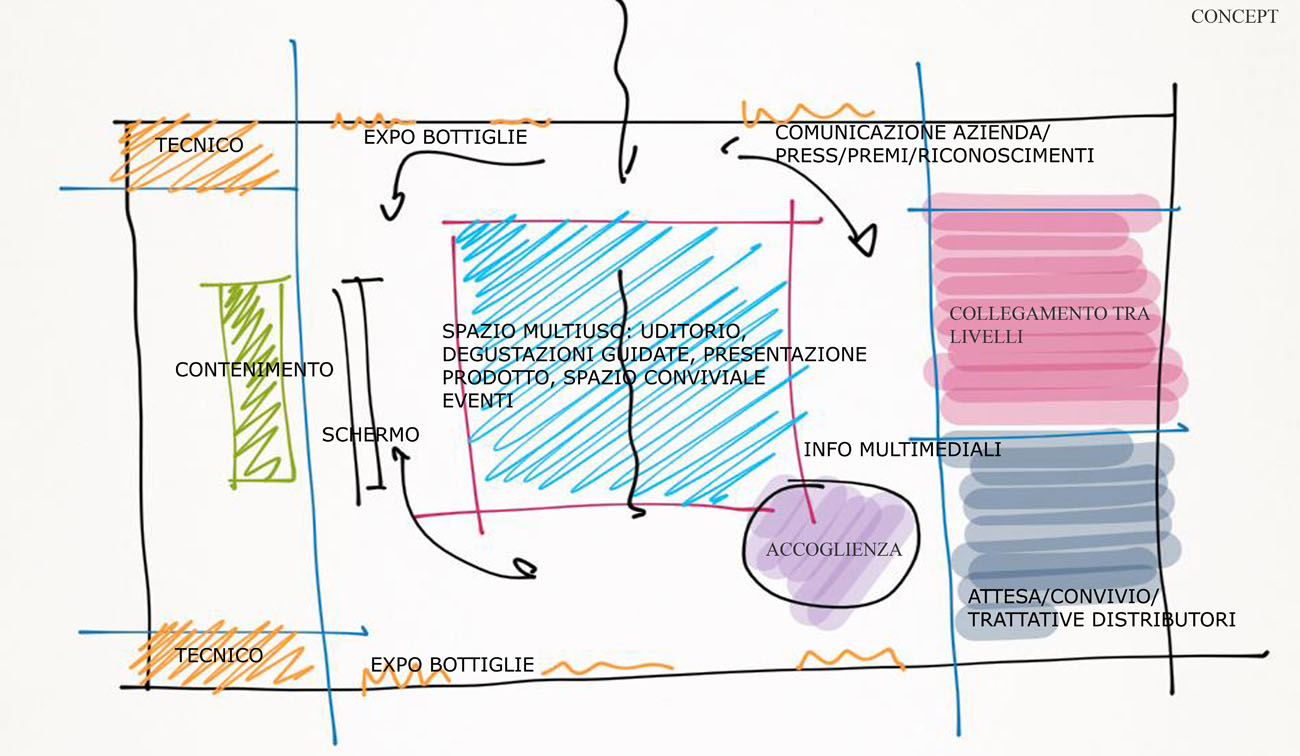 CONCEPT
TECNICO
EXPO BOTTIGLIE
COMUNICAZIONE AZIENDA/
PRESS/PREMI/RICONOSCIMENTI
COLLEGAMENTO TRA
LIVELLI
SPAZIO MULTIUSO: UDITORIO,
DEGUSTAZIONI GUIDATE, PRESENTAZIONE
PRODOTTO, SPAZIO CONVIVIALE
EVENTI
CONTENIMENTO
SCHERMO
INFO MULTIMEDIALI
ACCOGLIENZA
ATTESA/CONVIVIO/
TRATTATIVE DISTRIBUTORI
TECNICO
EXPO BOTTIGLIE